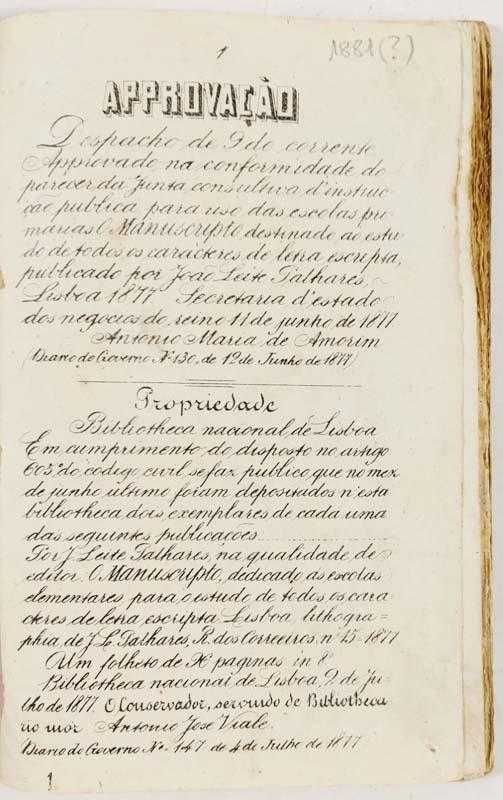 1
1881(?)
APPROVAÇÃO
Despacho de 9 do corrente
Approvado na conformidade do
parecer da Junta consultiva d'instruc-
ção publica para uso das escolas pri-
marias O Manuscripto, destinado ao estu-
do de todos os caracteres de letra escripta,
publicado por João Leite Talhares
Lisboa 1877 Secretaria d'estado
dos negocios do reino 11 de junho de 1877
Antonio Maria de Amorim
(Diario do Governo Nº 130, de 12 de Junho de 1877)
Propriedade
Bibliotheca nacional de Lisboa
Em cumprimento do disposto no artigo
603º do codigo civil se faz publico, que no mez
de junho ultimo foram depositados n'esta
bibliotheca dois exemplares de cada uma
das seguintes publicações
Por J. Leite Talhares, na qualidade de
editor. O Manuscripto, dedicado ás escolas
elementares para o estudo de todos os cara-
cteres de letra escripta Lisboa, lithogra-
phia, de J. L. Talhares, R. dos Correeiros, nº 15-1877
Um folheto de paginas in 8º
Bibliotheca nacional de Lisboa, 2 de ju-
lho de 1877. O Conservador, servindo de Bibliotheca-
rio mór Antonio José Viale.
Diario do Governo Nº 147 de 4 de Julho de 1877
1